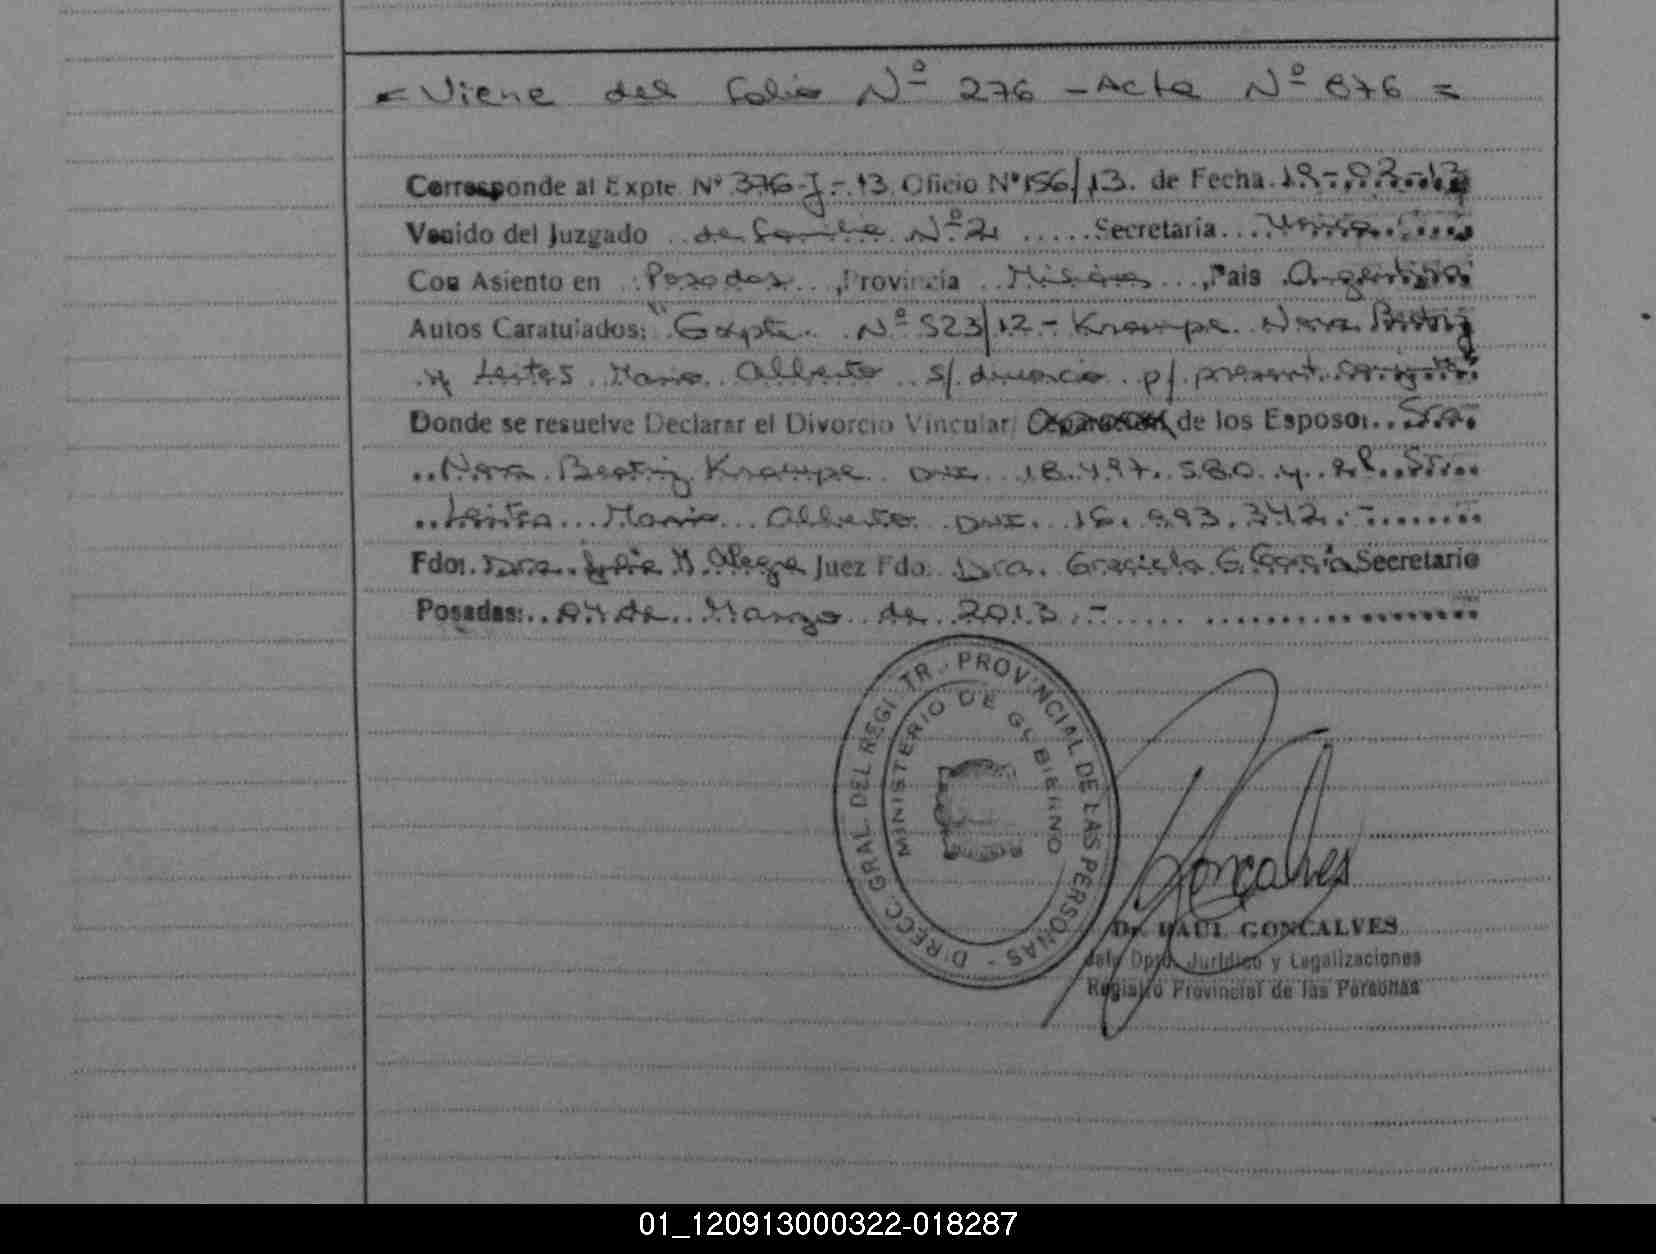 = Viene del folio Nº 276 - Acta Nº 876 =
Corresponde al Expte. Nº 376-J-13. Oficio Nº 156/13. de Fecha
Venido del Juzgado de familia Nº 2 Secretaria Única
Con Asiento en Posadas, Provincia Misiones, Pais Argentina
Autos Caratulados: "Expte. Nº 523/12 - Krampe Nora Beatriz
y Leites Mario Alberto s/ divorcio p/ present. conjunta
Donde se resuelve Declarar el Divorcio Vincular/ de los Esposos. Sra.
Nora Beatriz Krampe DNI 18.497.580 y el Sr.
Leites Mario Alberto DNI. 342.-
Fdo: Dra. Julia M. Alegre Juez Fdo. Dra. Graciela G. Secretario
Posadas: 04 de Marzo de 2013.-
DIRECC. GRAL. DEL REGISTR. PROVINCIAL DE LAS PERSONAS -
MINISTERIO DE GOBIERNO
Goncalves
Dr. RAUL GONCALVES
Jefe Dpto. Jurídico y Legalizaciones
Registro Provincial de las Personas
01_120913000322-018287